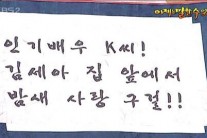 인기배우 K씨!
김세아 집 앞에서
밤새 사랑 구걸!!